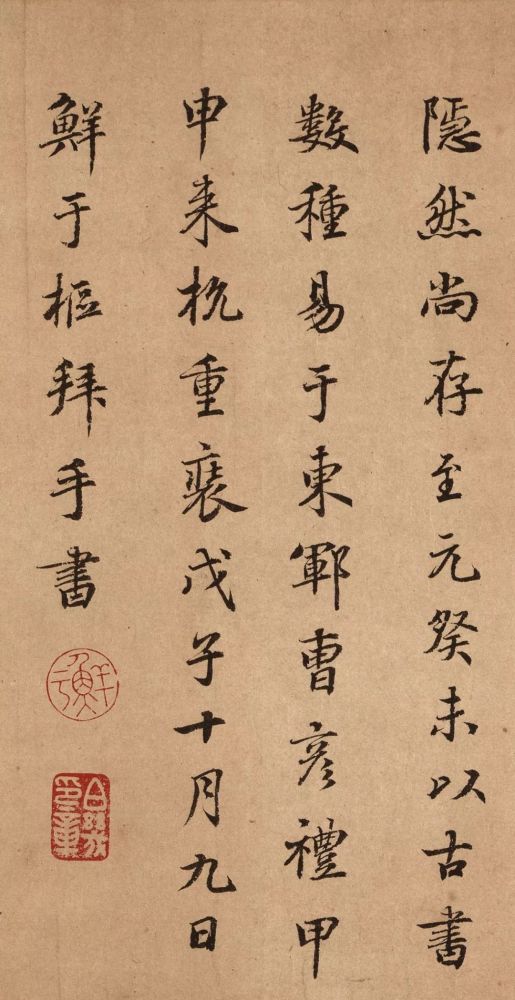 隱然尚存至元癸未以古書
數種易于東鄆曹彦禮甲
申来杭重裝戊子十月九日
鮮于樞拜手書
鮮于
印章